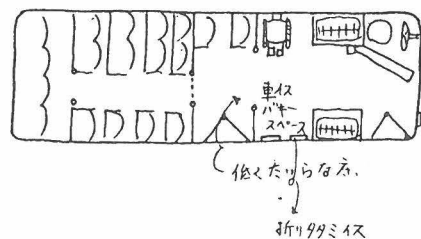 車イス
バギー
スペース
低くたいらな床、
折りタタミイス